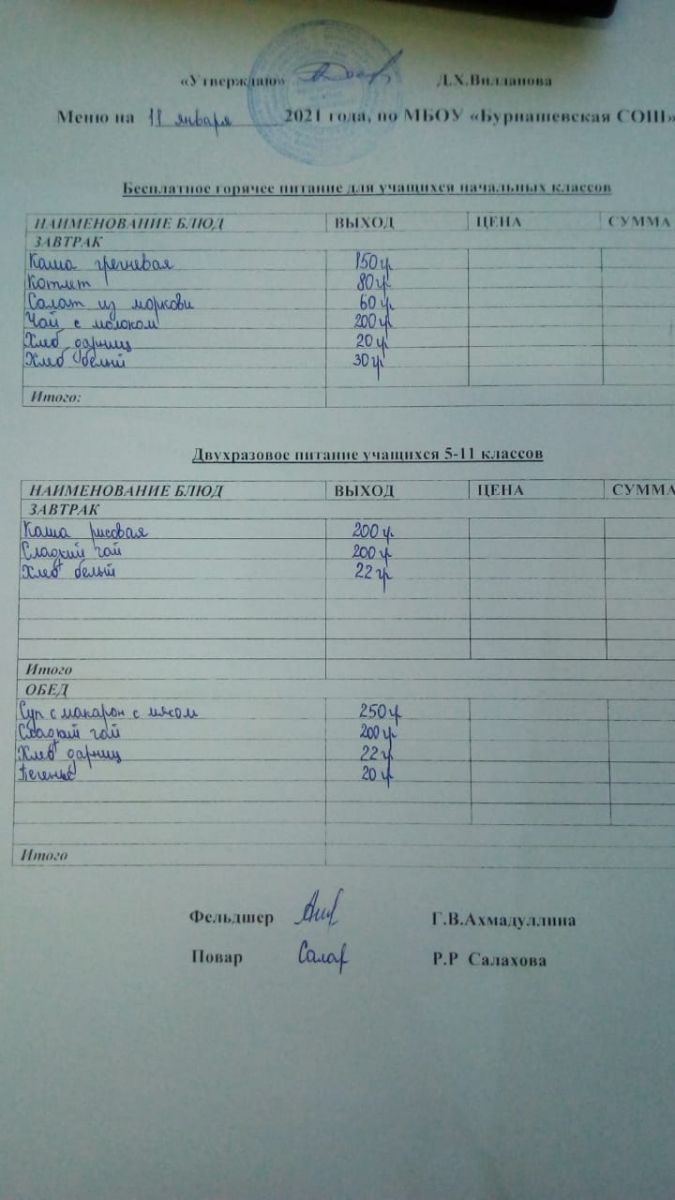 «Утверждаю» Д.Х.Виллданова
Меню на 11 января 2021 года, по МБОУ «Бурнашевская СОШ»
Бесплатное горячее питание для учащихся начальных классов
НАИМЕНОВАНИЕ БЛЮД ВЫХОД ЦЕНА СУММА
ЗАВТРАК
Каша гречневая 150 гр
Котлет 80 гр
Салат из моркови 60 гр
Чай с молоком 200 гр
Хлеб дарниц 20 гр
Хлеб белый 30 гр
Итого:
Двухразовое питание учащихся 5-11 классов
НАИМЕНОВАНИЕ БЛЮД ВЫХОД ЦЕНА СУММА
ЗАВТРАК
Каша рисовая 200 гр
Сладкий чай 200 гр
Хлеб белый 22 гр
Итого
ОБЕД
Суп с макарон с мясом 250 гр
Сладкий чай 200 гр
Хлеб дарниц 22 гр
Печенье 20 гр
Итого
Фельдшер Г.В.Ахмадуллина
Повар Салах Р.Р Салахова